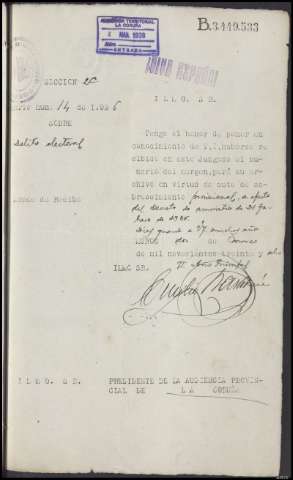 B.3.449.533
AUDIENCIA TERRITORIAL
LA CORUÑA
MAR. 1938
ENTRADA
¡ARRIBA ESPAÑA!
SECCION 2ª
num. 14 de 1.936
SOBRE
delito electoral
Acuso de Recibo
ILMO. SR.
Tengo el honor de poner en
conocimiento de V.I. haberse re
cibido en este Juzgado el su
mario del margen, para su ar
chivo en virtud de auto de so
breseimiento provisional, a efectos
del Decreto de amnistía de 21 fe
brero de 1936.
Dios guarde a V.I. muchos años
dos de
de mil novecientos treinta y ocho
II Año Triunfal
ILMO SR.
ILMO. SR.
PRESIDENTE DE LA AUDIENCIA PROVIN-
CIAL DE LA CORUÑA